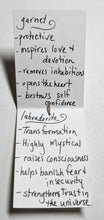 garnet
- protective
- inspires love &
devotion
- removes inhibitions
- opens the heart
- bestows self
confidence
labradorite
- Transformation
- Highly mystical
- raises consciousness
- helps banish fear &
insecurity
- strengthens trust in
the universe